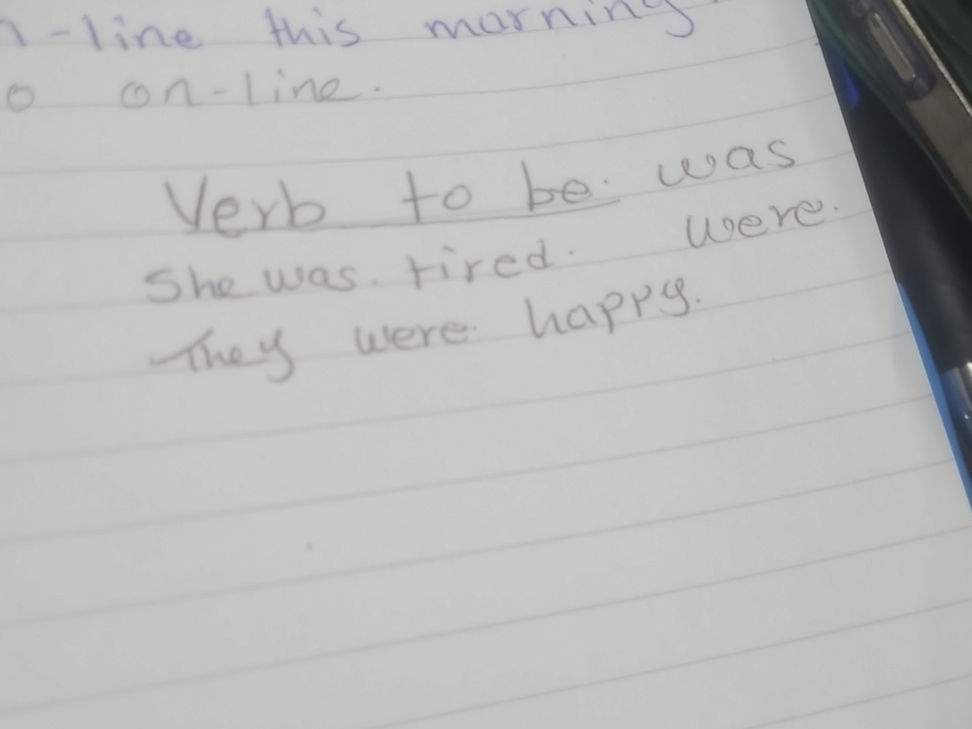 -line this morning
on-line.
Verb to be. was
were.
She was. tired.
They were. happy.